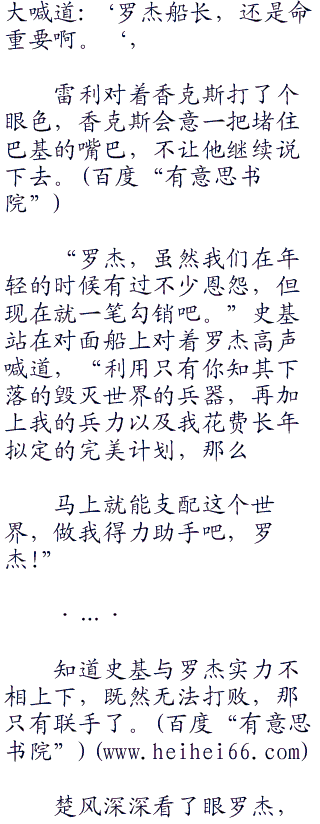 大喊道：‘罗杰船长，还是命
重要啊。‘，
雷利对着香克斯打了个
眼色，香克斯会意一把堵住
巴基的嘴巴，不让他继续说
下去。(百度“有意思书
院”)
“罗杰，虽然我们在年
轻的时候有过不少恩怨，但
现在就一笔勾销吧。”史基
站在对面船上对着罗杰高声
喊道，“利用只有你知其下
落的毁灭世界的兵器，再加
上我的兵力以及我花费长年
拟定的完美计划，那么
马上就能支配这个世
界，做我得力助手吧，罗
杰!”
. ... .
知道史基与罗杰实力不
相上下，既然无法打败，那
只有联手了。(百度“有意思
书院”)(www.heihei66.com)
楚风深深看了眼罗杰，